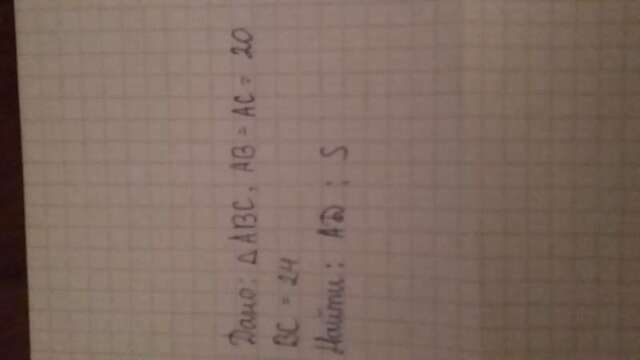 Дано: △ABC, AB = AC = 20
BC = 24
Найти: AD ; S